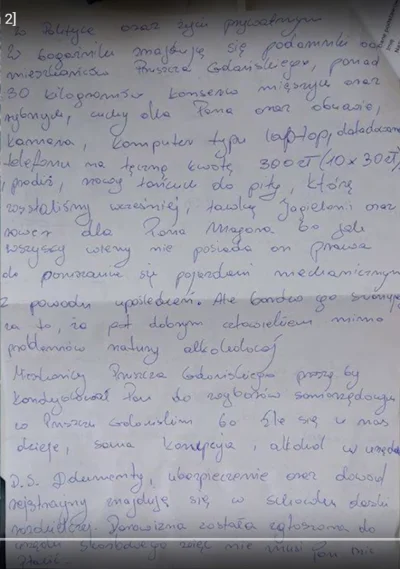 2]
w Polityce oraz życiu prywatnym
W bagażniku znajdują się podarunki od
mieszkańców Pruszcza Gdańskiego, ponad
30 kilogramów konserw mięsnych oraz
rybnych, ciuchy dla Pana oraz obuwie,
kamera, komputer typu laptop, doładowania
telefonu na łączną kwotę 300zł (10x30zł)
nowy łańcuch do piły, którą
wysłaliśmy wcześniej, ławkę Jagielloni oraz
rower dla Pana Majora bo jak
wszyscy wiemy nie posiada on prawa
do poruszania się pojazdami mechanicznymi
z powodu upośledzeń. Ale bardzo go
za to, że jest dobrym człowiekiem mimo
problemów natury alkoholowej
Mieszkańcy Pruszcza Gdańskiego proszę by
kandydował Pan do wyborów samorządowych
w Pruszczu Gdańskim bo źle się u nas
dzieje, sama korupcja, alkohol w urzędzie
P.S. Dokumenty, ubezpieczenie oraz dowód
rejstracyjny znajdują się w schowku deski
rozdzielczej. Darowizna została zgłoszona do
urzędu skarbowego więc nie musi Pan nic
płacić